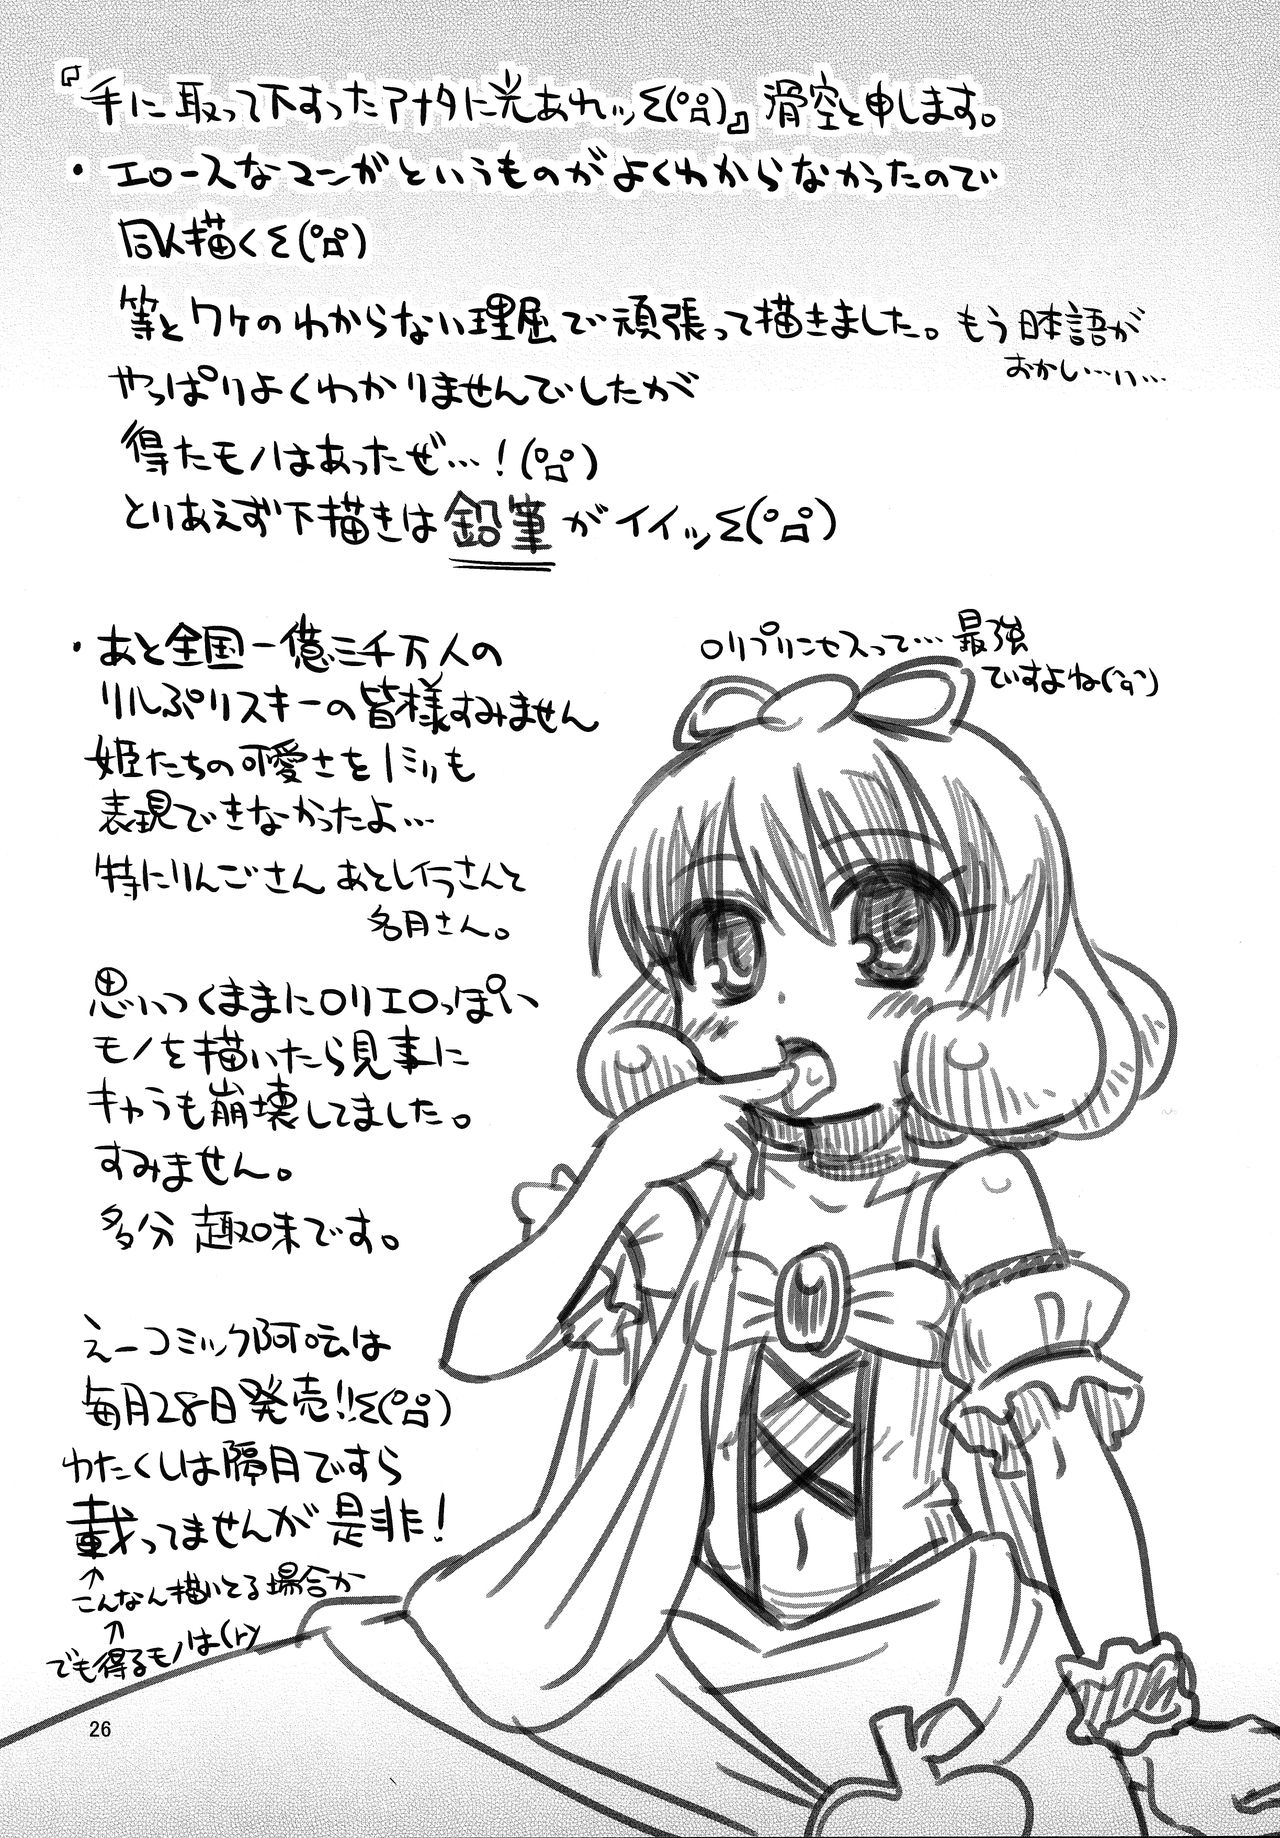 『手に取って下すったアナタに光あれッΣ(°ロ°)』滑空と申します。
・エロースなマンガというものがよくわからなかったので
同人描くΣ(°ロ°)
等とワケのわからない理屈で頑張って描きました。もう日本語が
おかしい…ｯｯ…
やっぱりよくわかりませんでしたが
得たモノはあったぜ…!(°ロ°)
とりあえず下描きは鉛筆がイイッΣ(°ロ°)
・あと全国一億三千万人の
リルぷリスキーの皆様すみません
姫たちの可愛さを1ミリも
表現できなかったよ…
特にりんごさん あとレイラさんと
名月さん。
思いつくままにロリエロっぽい
モノを描いたら見事に
キャラも崩壊してました。
すみません。
多分 趣味です。
ロリプリンセスって…最強
ですよね
えーコミック阿吽は
毎月28日発売!!Σ(°ロ°)
わたくしは隔月ですら
載ってませんが是非!
↑
こんなん描いてる場合か
↑
でも得るモノは(ry
26